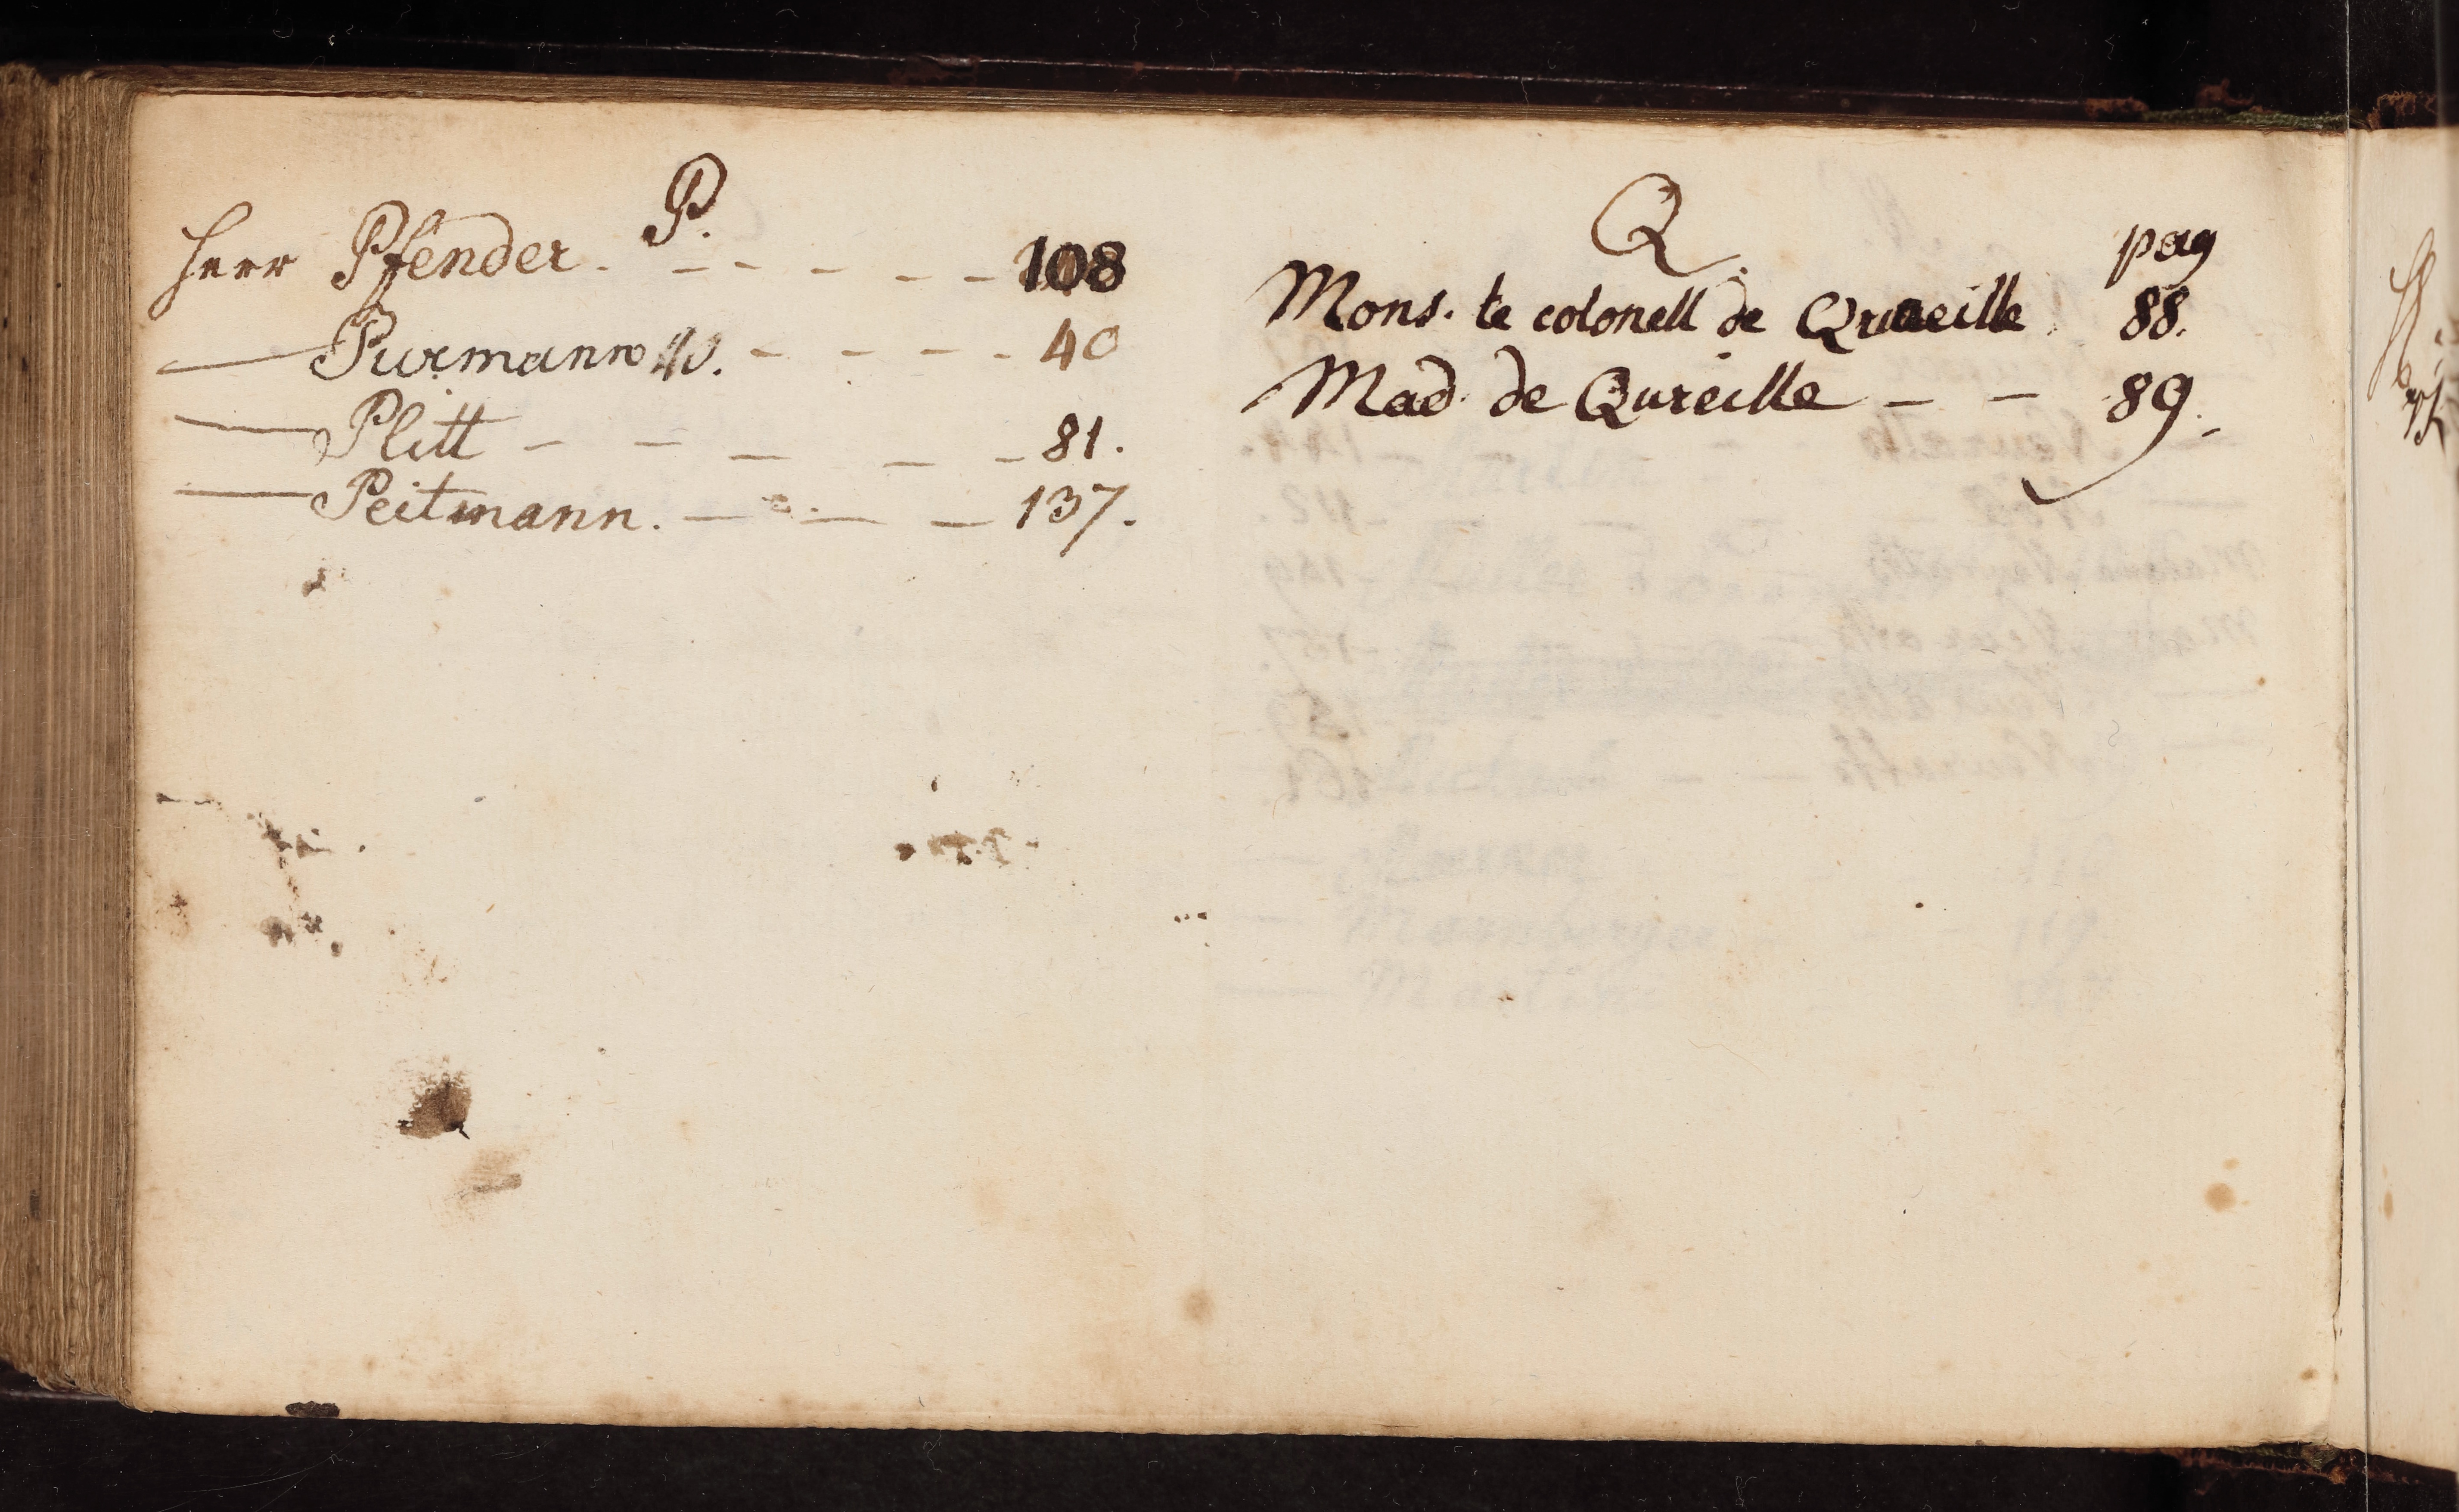 P.
Herr Pfender. - - - - - - 108
— Purmann - - - - 40
— Plitt - - - - - 81.
— Peitmann. - - - 137.
Q.
pag
Mons. le colonell de Qureille 88.
Mad. de Qureille - - 89.